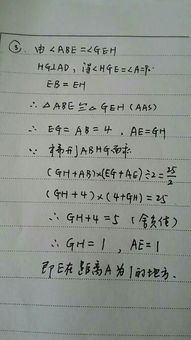 ③. 由∠ABE=∠GEH
HG⊥AD, 得∠HGE=∠A=90°
EB=EH
∴ △ABE≌△GEH (AAS)
∴ EG=AB=4, AE=GH
∵ 梯形ABHG面积
(GH+AB)×(EG+AE)÷2=25/2
(GH+4)×(4+GH)=25
∴ GH+4=5 (舍负值)
∴ GH=1, AE=1
即E在距离A为1的地方.